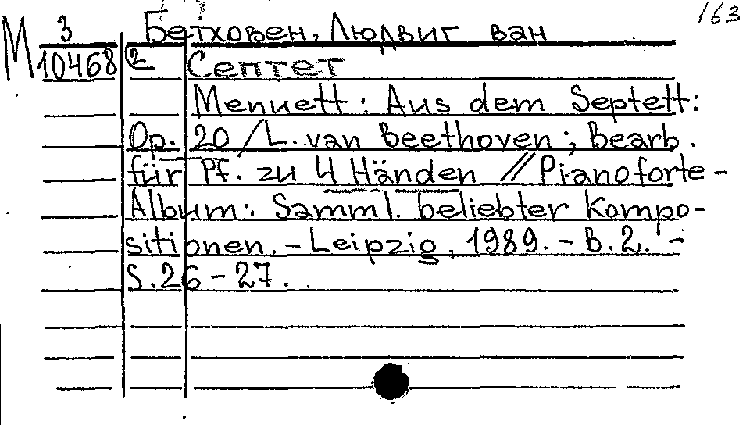 163
М 3 Бетховен, Людвиг ван
10468 2 Септет
Menuett: Aus dem Septett:
Op. 20 / L. van Beethoven; Bearb.
für Pf. zu 4 Händen // Pianoforte-
Album: Samml. beliebter Kompo-
sitionen. - Leipzig, 1989. - B. 2. -
S. 26 - 27.